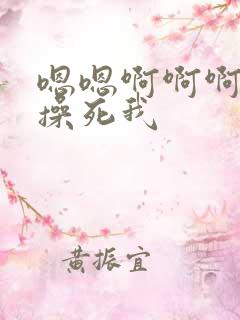 嗯嗯啊啊啊
操死我
黄振宜